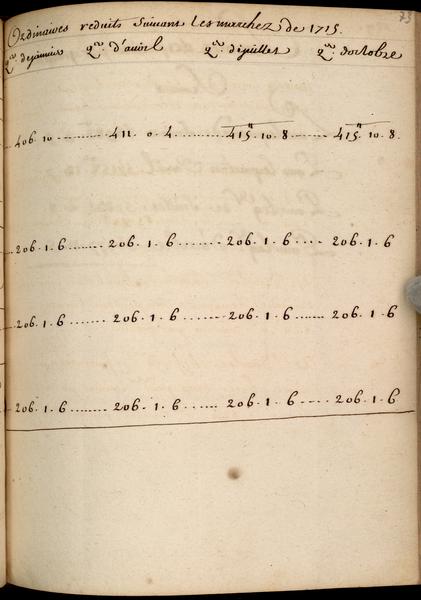 73
Ordinaires reduits Suivant Les marchez de 1715.
Qer. de janvier Qer. d'avril Qer. de juillet Qer. d'octobre
406. 10 ----- 411. 0. 4 ------ 415tt. 10. 8 ---- 415tt. 10. 8.
206. 1. 6 ....... 206. 1. 6 ........ 206. 1. 6 .... 206. 1. 6
206. 1. 6 ....... 206. 1. 6 ....... 206. 1. 6 ...... 206. 1. 6
206. 1. 6 ........ 206. 1. 6 ...... 206. 1. 6 ---- 206. 1. 6